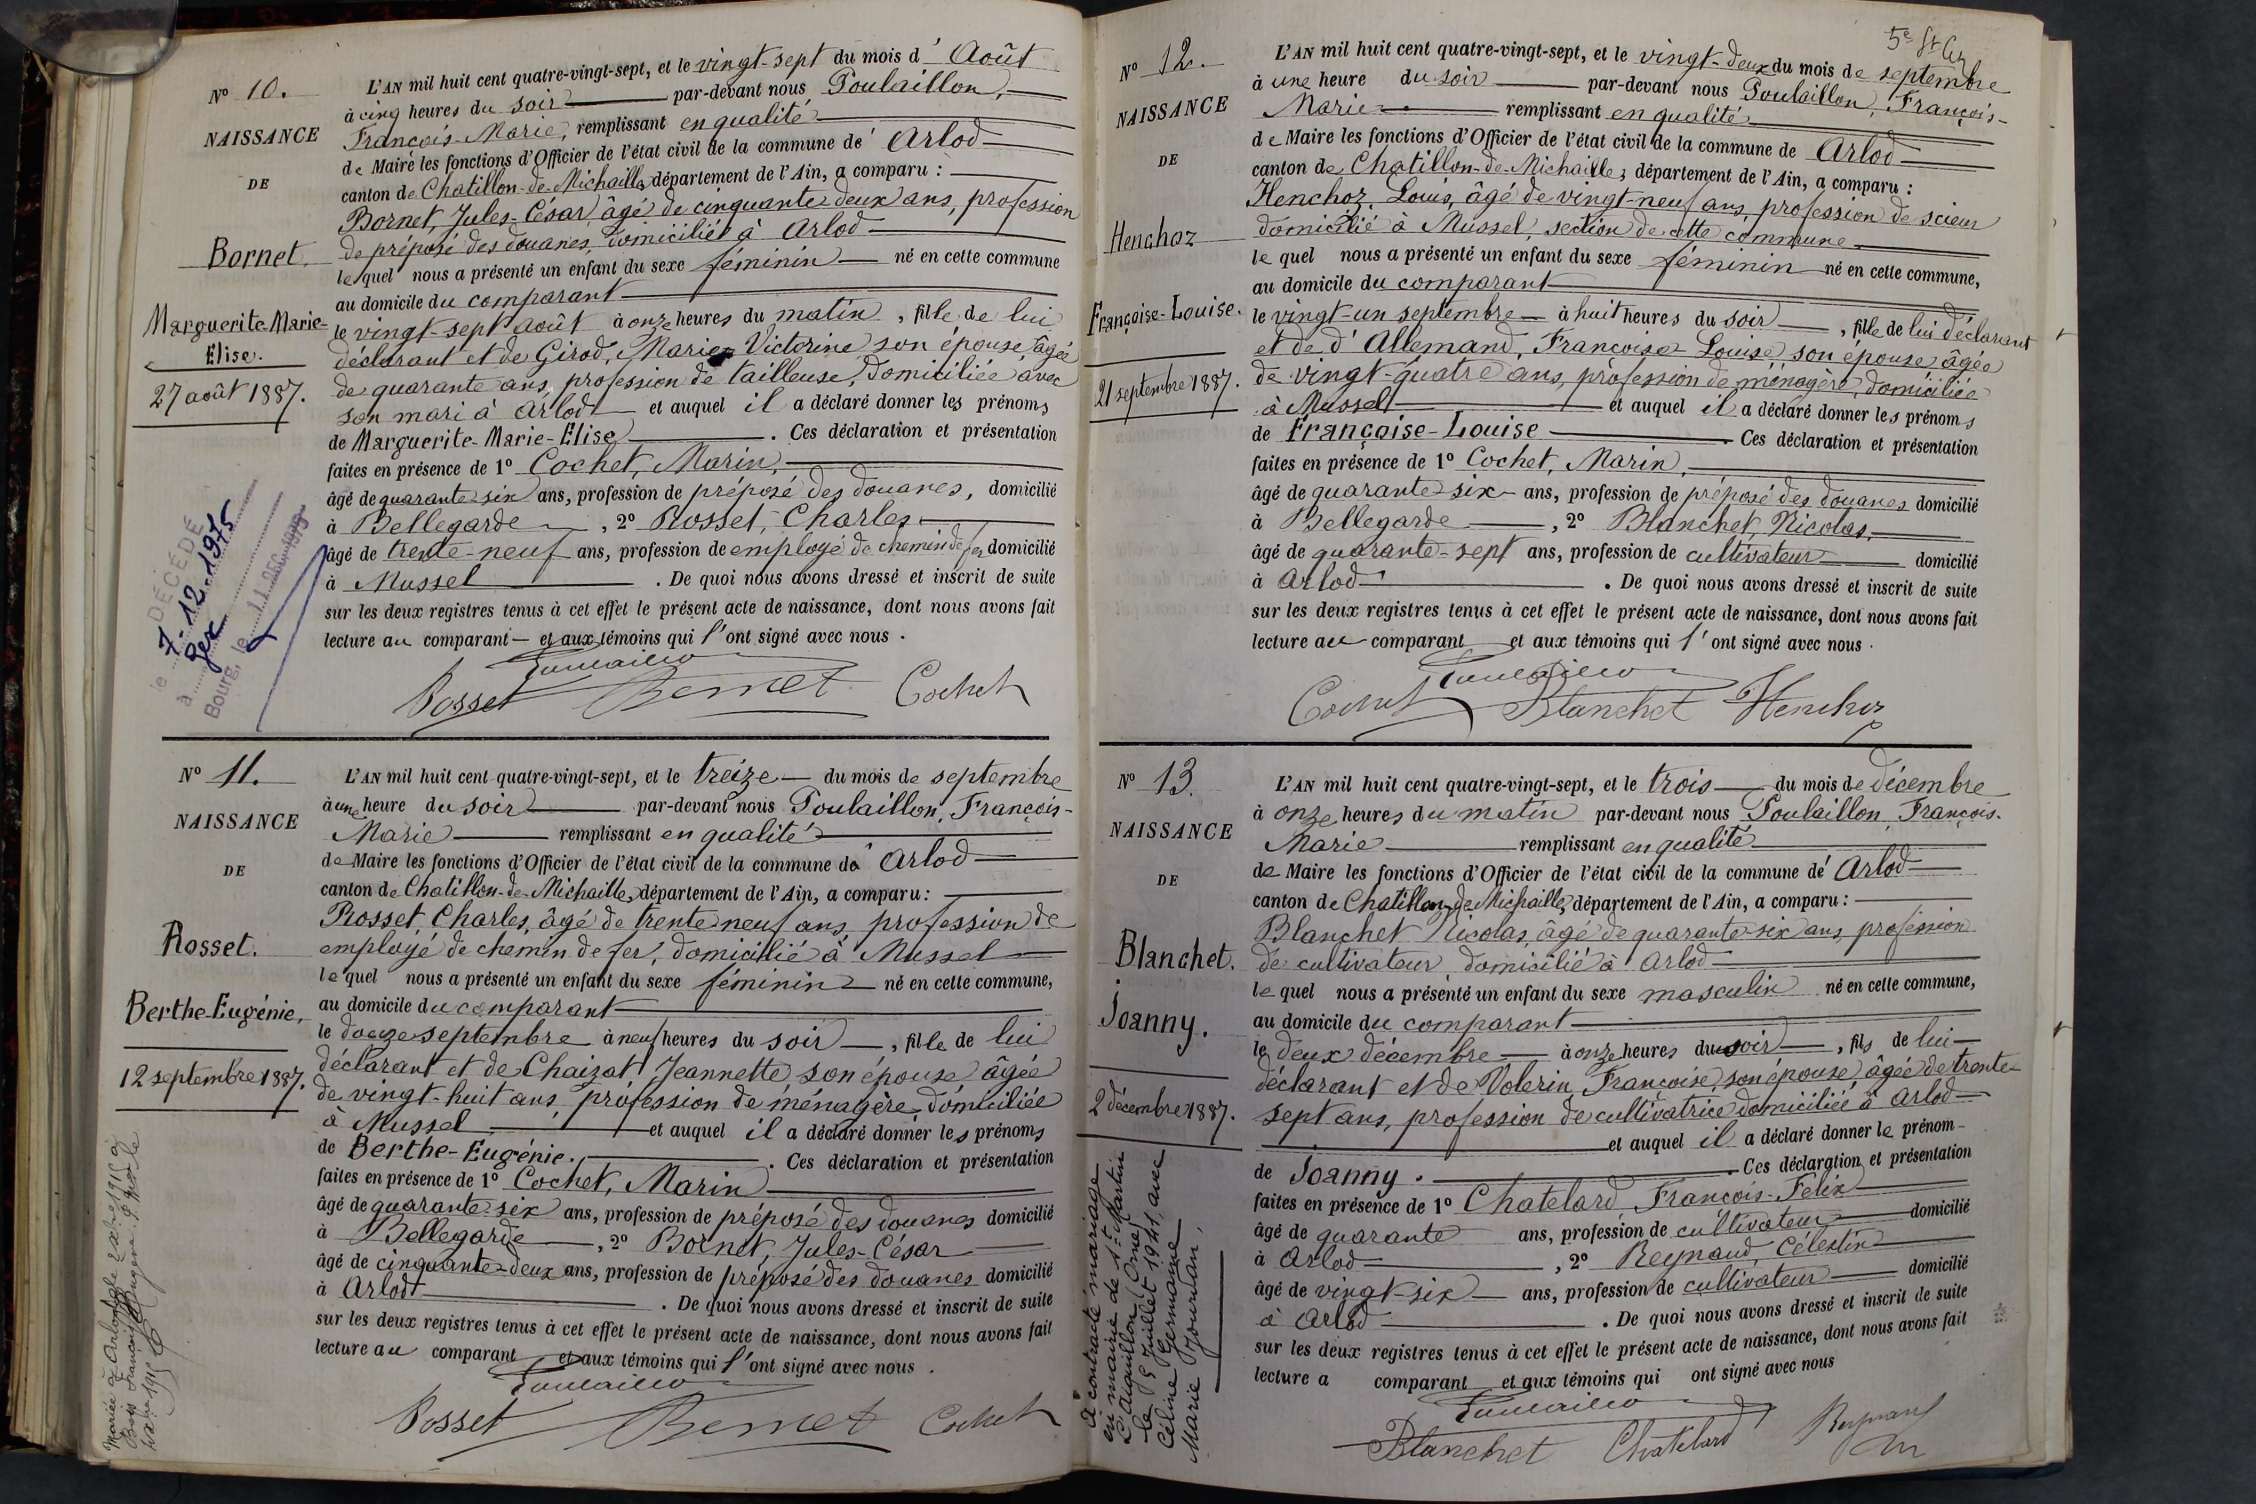 N° 10.
NAISSANCE
DE
Bornet.
Marguerite-Marie-
Elise.
27 août 1887.
DÉCÉDÉ
le 7-12-1975
à Gex
Bourg, le 11 DEC. 1975
L'AN mil huit cent quatre-vingt-sept, et le vingt-sept du mois d'Août
à cinq heures du soir par-devant nous Poulaillon,
François-Marie, remplissant en qualité
de Maire les fonctions d'Officier de l'état civil de la commune de Arlod
canton de Chatillon-de-Michaille, département de l'Ain, a comparu :
Bornet, Jules-César âgé de cinquante-deux ans, profession
de préposé des douanes, domicilié à Arlod
lequel nous a présenté un enfant du sexe féminin né en cette commune
au domicile du comparant
le vingt-sept août à onze heures du matin, fille de lui
déclarant et de Girod, Marie Victorine son épouse, âgée
de quarante ans, profession de tailleuse, domiciliée avec
son mari à Arlod et auquel il a déclaré donner les prénoms
de Marguerite-Marie-Elise. Ces déclaration et présentation
faites en présence de 1° Cochet, Marin,
âgé de quarante-six ans, profession de préposé des douanes, domicilié
à Bellegarde, 2° Rosset, Charles
âgé de trente-neuf ans, profession de employé de chemin de fer, domicilié
à Mussel. De quoi nous avons dressé et inscrit de suite
sur les deux registres tenus à cet effet le présent acte de naissance, dont nous avons fait
lecture au comparant et aux témoins qui l'ont signé avec nous.
Poulaillon
Rosset Bornet Cochet
N° 11.
NAISSANCE
DE
Rosset.
Berthe-Eugénie.
12 septembre 1887.
Mariée à Arlod le
L'AN mil huit cent quatre-vingt-sept, et le treize du mois de septembre
à une heure du soir par-devant nous Poulaillon, François-
Marie remplissant en qualité
de Maire les fonctions d'Officier de l'état civil de la commune de Arlod
canton de Chatillon-de-Michaille, département de l'Ain, a comparu :
Rosset, Charles, âgé de trente-neuf ans, profession de
employé de chemin de fer, domicilié à Mussel
lequel nous a présenté un enfant du sexe féminin né en cette commune,
au domicile du comparant
le douze septembre à neuf heures du soir, fille de lui
déclarant et de Chaizat, Jeannette son épouse âgée
de vingt-huit ans, profession de ménagère, domiciliée
à Mussel et auquel il a déclaré donner les prénoms
de Berthe-Eugénie. Ces déclaration et présentation
faites en présence de 1° Cochet, Marin
âgé de quarante-six ans, profession de préposé des douanes domicilié
à Bellegarde, 2° Bornet, Jules-César
âgé de cinquante-deux ans, profession de préposé des douanes domicilié
à Arlod. De quoi nous avons dressé et inscrit de suite
sur les deux registres tenus à cet effet le présent acte de naissance, dont nous avons fait
lecture au comparant et aux témoins qui l'ont signé avec nous.
Poulaillon
Rosset Bornet Cochet
N° 12.
NAISSANCE
DE
Henchoz
Françoise-Louise.
21 septembre 1887.
L'AN mil huit cent quatre-vingt-sept, et le vingt-deux du mois de septembre
à une heure du soir par-devant nous Poulaillon, François-
Marie remplissant en qualité
de Maire les fonctions d'Officier de l'état civil de la commune de Arlod
canton de Chatillon-de-Michaille, département de l'Ain, a comparu :
Henchoz, Louis, âgé de vingt-neuf ans, profession de scieur
domicilié à Mussel, section de cette commune
lequel nous a présenté un enfant du sexe féminin né en cette commune,
au domicile du comparant
le vingt-un septembre à huit heures du soir, fille de lui déclarant
et de d'Allemand, Françoise Louise son épouse, âgée
de vingt-quatre ans, profession de ménagère, domiciliée
à Mussel et auquel il a déclaré donner les prénoms
de Françoise-Louise. Ces déclaration et présentation
faites en présence de 1° Cochet, Marin,
âgé de quarante-six ans, profession de préposé des douanes domicilié
à Bellegarde, 2° Blanchet, Nicolas,
âgé de quarante-sept ans, profession de cultivateur domicilié
à Arlod. De quoi nous avons dressé et inscrit de suite
sur les deux registres tenus à cet effet le présent acte de naissance, dont nous avons fait
lecture au comparant et aux témoins qui l'ont signé avec nous.
Poulaillon
Cochet Blanchet Henchoz
N° 13.
NAISSANCE
DE
Blanchet.
Joanny.
2 décembre 1887.
A contracté mariage
en mairie de St Martin
L'Aiguillon (Orne)
le 5 juillet 1941, avec
Céline Germaine
Marie Jourdan,
L'AN mil huit cent quatre-vingt-sept, et le trois du mois de décembre
à onze heures du matin par-devant nous Poulaillon, François-
Marie remplissant en qualité
de Maire les fonctions d'Officier de l'état civil de la commune de Arlod
canton de Chatillon-de-Michaille, département de l'Ain, a comparu :
Blanchet Nicolas, âgé de quarante-six ans, profession
de cultivateur, domicilié à Arlod
lequel nous a présenté un enfant du sexe masculin né en cette commune,
au domicile du comparant
le deux décembre à onze heures du soir, fils de lui
déclarant et de Volerin, Françoise, son épouse âgée de trente-
sept ans, profession de cultivatrice domiciliée à Arlod
et auquel il a déclaré donner le prénom
de Joanny. Ces déclaration et présentation
faites en présence de 1° Chatelard, François-Felix
âgé de quarante ans, profession de cultivateur domicilié
à Arlod, 2° Reynaud, Célestin
âgé de vingt-six ans, profession de cultivateur domicilié
à Arlod. De quoi nous avons dressé et inscrit de suite
sur les deux registres tenus à cet effet le présent acte de naissance, dont nous avons fait
lecture a comparant et aux témoins qui ont signé avec nous
Poulaillon
Blanchet Chatelard Reynaud